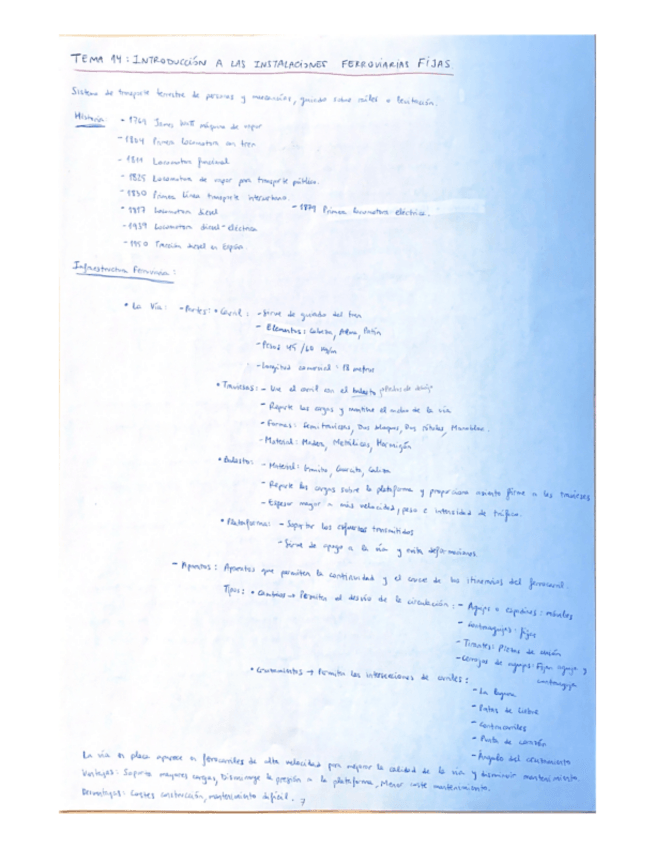 TEMA 14: INTRODUCCIÓN A LAS INSTALACIONES FERROVIARIAS FIJAS
Sistema de transporte terrestre de personas y mercancías, guiado sobre raíles o levitación.
Historia: - 1769 James Watt máquina de vapor
- 1804 Primera locomotora con tren
- 1811 Locomotora funcional
- 1825 Locomotora de vapor para transporte público.
- 1830 Primera línea transporte interurbano.
- 1879 Primera locomotora eléctrica.
- Locomotora diesel
- 1939 Locomotora diesel-eléctrica
- 1950 Tracción diesel en España.
Infraestructura Ferroviaria:
• La Vía: - Partes: • Carril: - Sirve de guiado del tren
- Elementos: Cabeza, Alma, Patín
- Pesos 45/60 kg/m
- Longitud comercial: 18 metros
• Traviesas: - Une el carril con el balasto
- Reparte las cargas y mantiene el ancho de la vía
- Formas: Semitraviesas, Dos bloques, Dos rótulas, Monobloc.
- Material: Madera, Metálicas, Hormigón
• Balasto: - Material: Granito, Cuarcita, Caliza
- Reparte las cargas sobre la plataforma y proporciona asiento firme a las traviesas
- Espesor mayor a más velocidad, peso e intensidad de tráfico.
• Plataforma: - Soportar los esfuerzos transmitidos
- Sirve de apoyo a la vía y evita deformaciones
- Aparatos: Aparatos que permiten la continuidad y el cruce de los itinerarios del ferrocarril.
Tipos: • Cambios → Permiten el desvío de la circulación: - Agujas o espadines: móviles
- Contraagujas: fijas
- Tirantes: Piezas de unión
- Cerrojos de agujas: Fijan aguja y
contraaguja
• Cruzamientos → Permiten las intersecciones de carriles:
- La laguna
- Patas de liebre
- Contracarriles
- Punta de corazón
- Ángulo del cruzamiento
La vía en placa aparece en ferrocarriles de alta velocidad para mejorar la calidad de la vía y disminuir mantenimiento.
Ventajas: Soporta mayores cargas, Disminuye la presión a la plataforma, Menor coste mantenimiento.
Desventajas: Costes construcción, mantenimiento difícil.